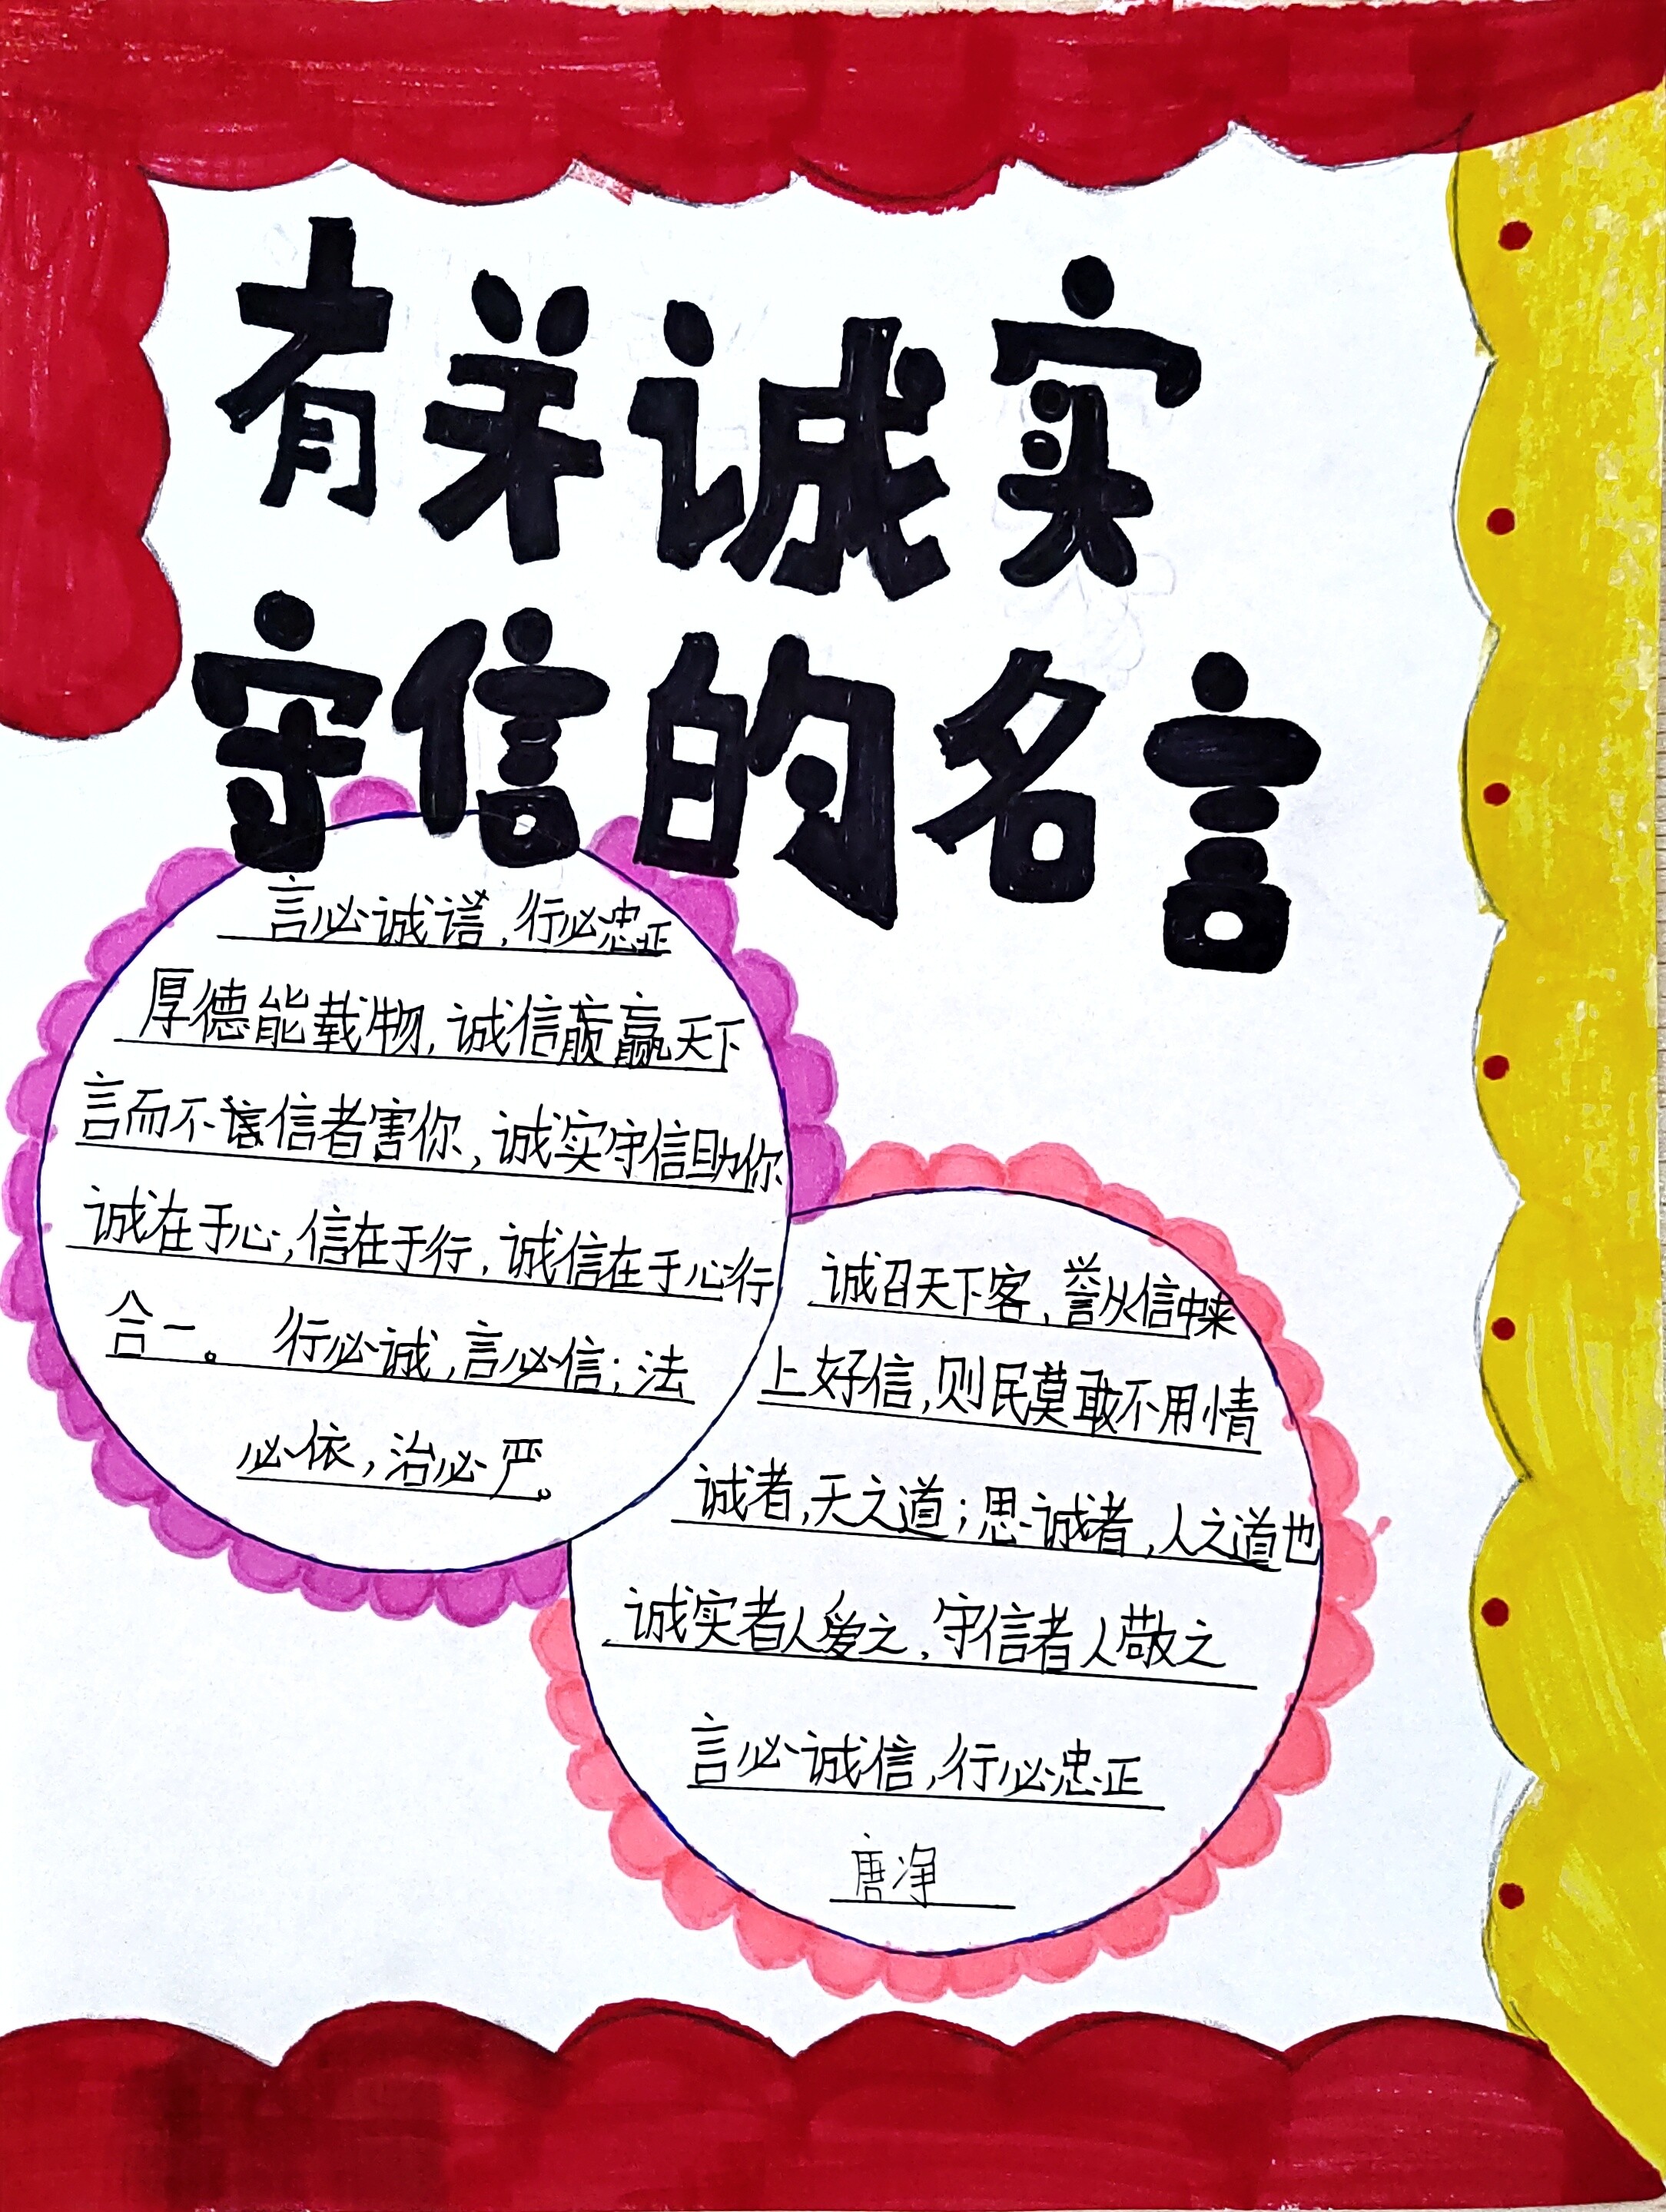 有关诚实
守信的名言
言必诚信,行必忠正
厚德能载物,诚信赢天下
言而不信者害你,诚实守信助你
诚在于心,信在于行,诚信在于心行
合一。 行必诚,言必信;法
必依,治必严。
诚召天下客,誉从信中来
上好信,则民莫敢不用情
诚者,天之道;思诚者,人之道也
诚实者人爱之,守信者人敬之
言必诚信,行必忠正
唐净